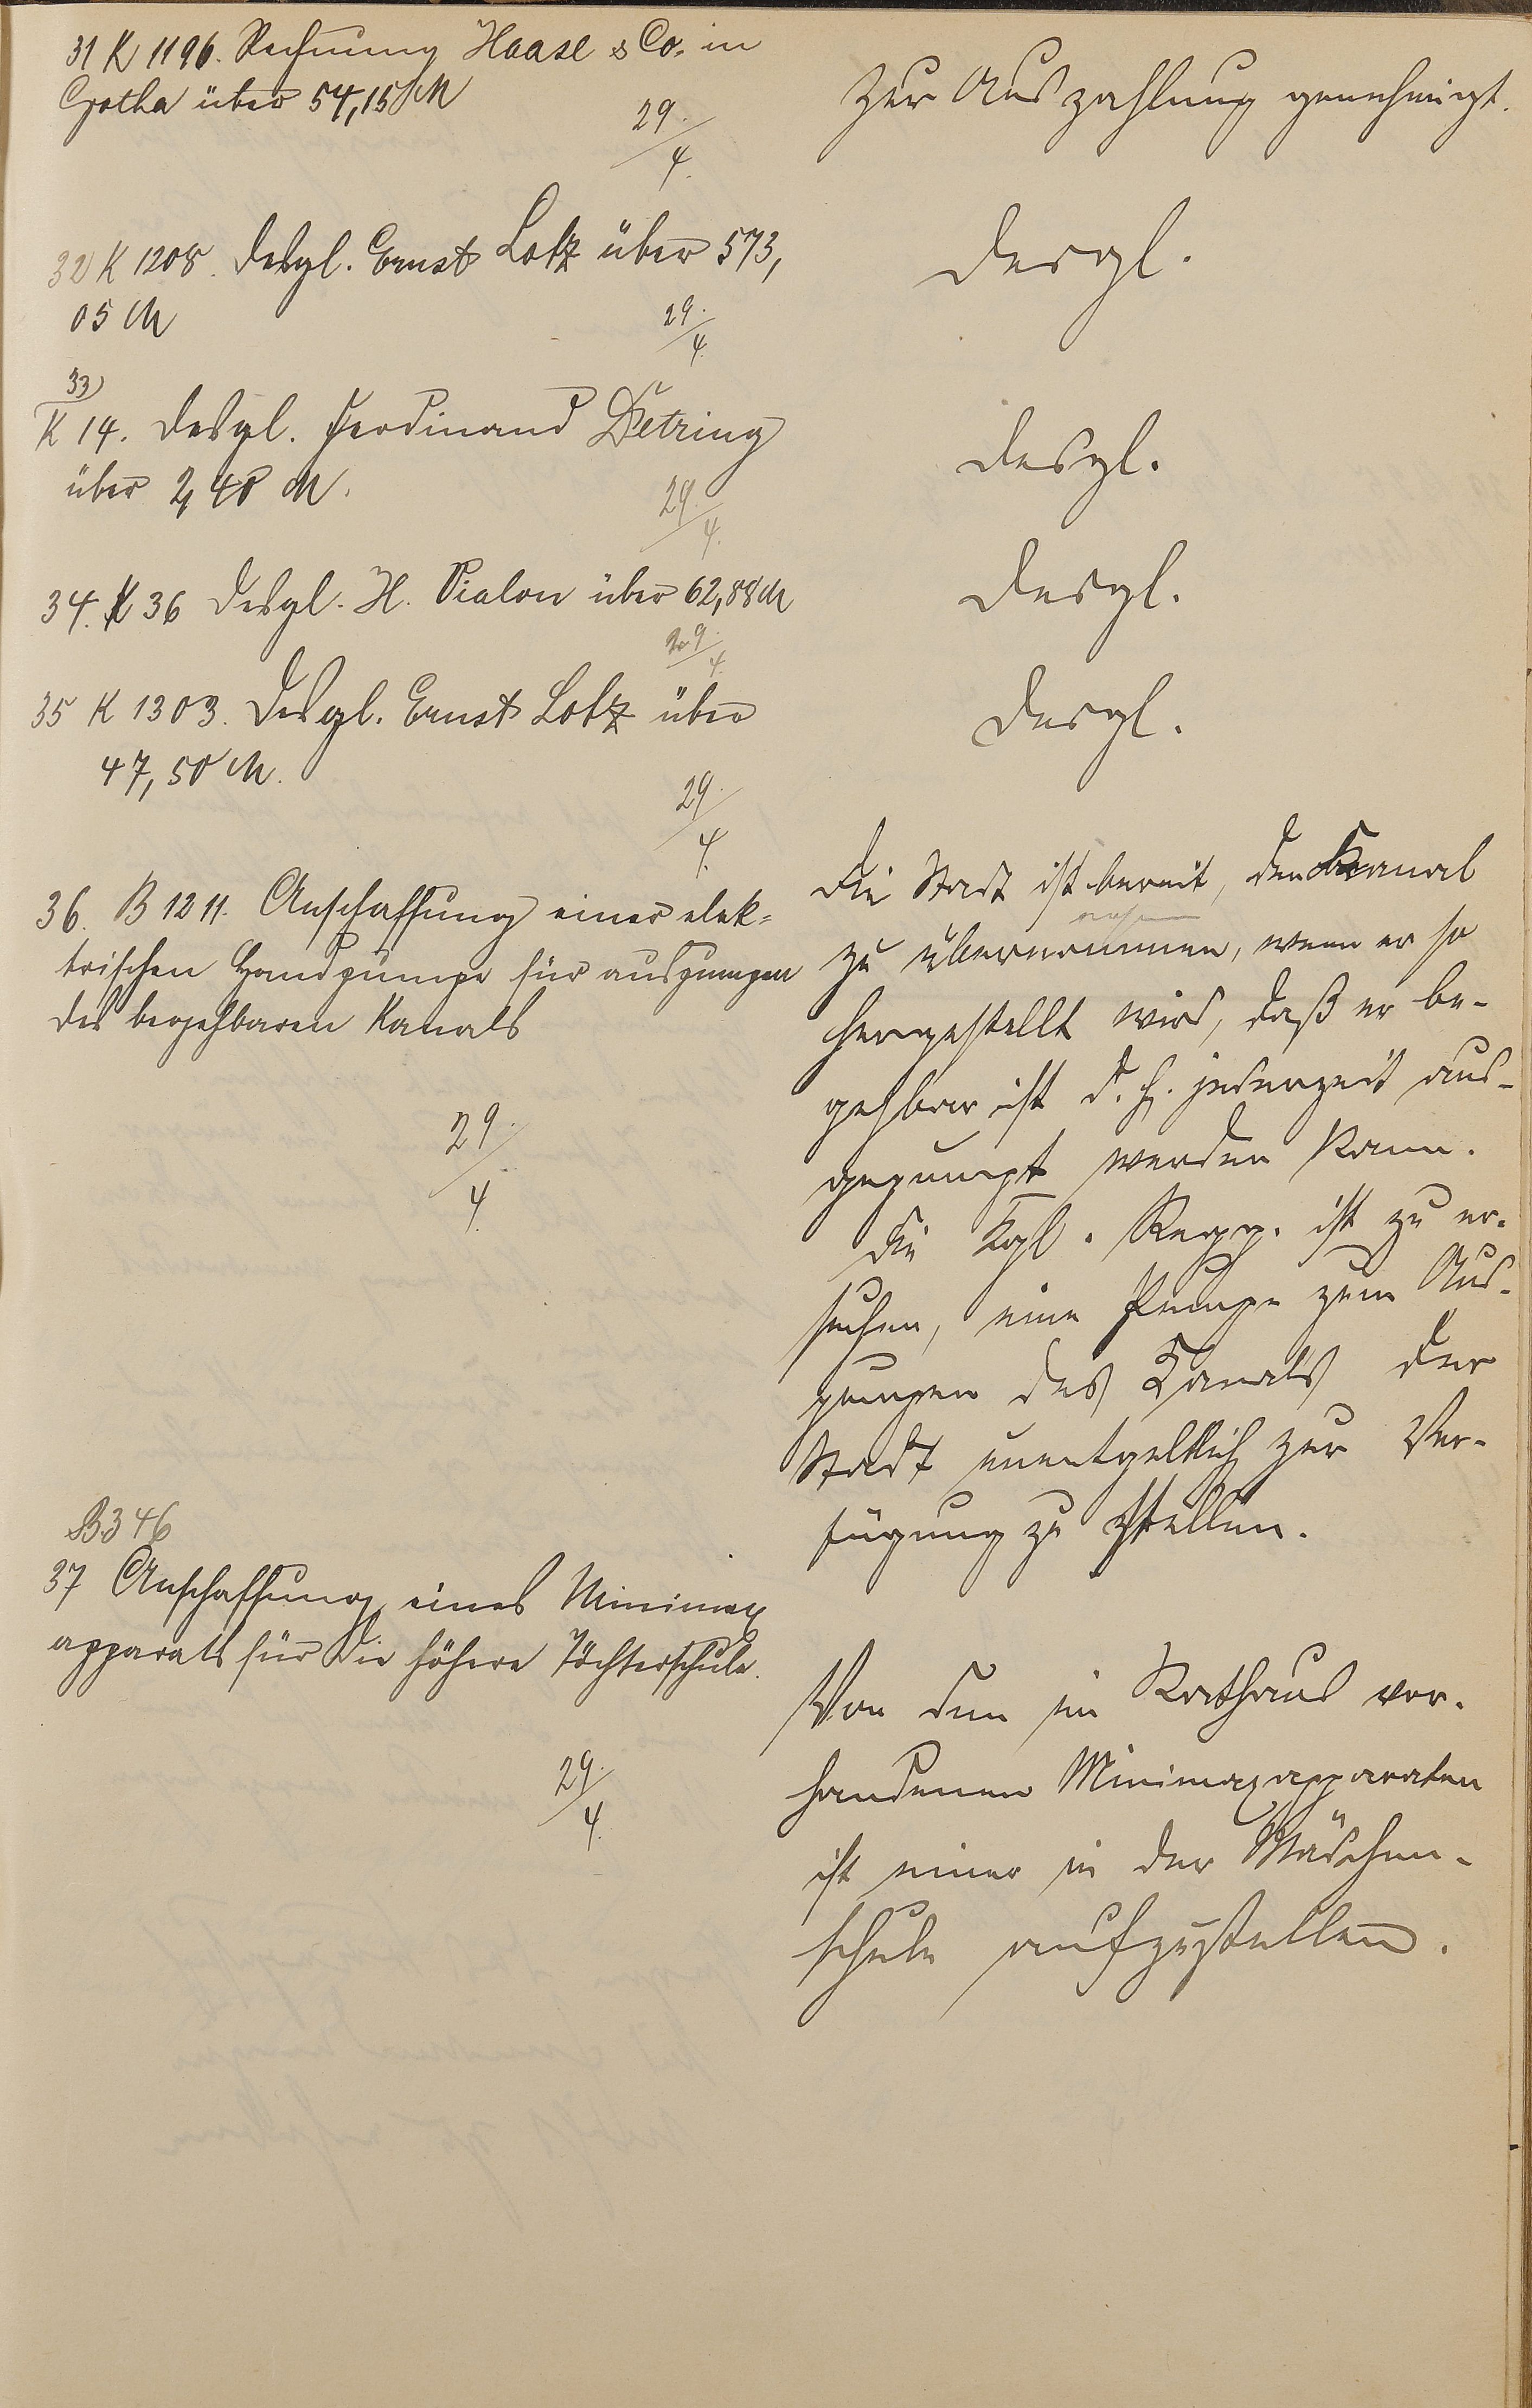 31 K 1196. Rechnung Haase & Co. in
Gotha über 54,15 M
29.
4.
Zur Auszahlung genehmigt.
32 K 1208. Desgl. Ernst Lotz über 573,
05 M
29.
4.
Desgl.
33
K 14. Desgl. Ferdinand Detring
über 2,40 M.
29.
4.
Desgl.
34. K 36 Desgl. H. Vialon über 62,88 M
29.
4.
Desgl.
35 K 1303. Desgl. Ernst Lotz über
47,50 M.
29.
4.
Desgl.
36. B 1211. Anschaffung einer elek-
trischen Handpumpe für auspumpen
des begehbaren Kanals
29.
4.
Die Stadt ist bereit, den Kanal
zu übernehmen, wenn er so
hergestellt wird, daß er be-
gehbar ist d. h. jederzeit aus-
gepumpt werden kann.
Die Kgl. Regg. ist zu er-
suchen, eine Pumpe zum Aus-
pumpen des Kanals der
Stadt unentgeltlich zur Ver-
fügung zu stellen.
B 346
37 Anschaffung eines Minimax
apparats für die höhere Töchterschule.
29.
4.
Von den im Rathaus vor-
handenen Minimaxapparaten
ist einer in der Mädchen-
schule aufzustellen.